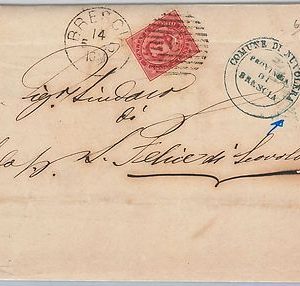 BRESCIA
14
COMUNE DI NUVOLERA
PROVINCIA
DI
BRESCIA
Sig. Sindaco
di
S. Felice di Scovolo